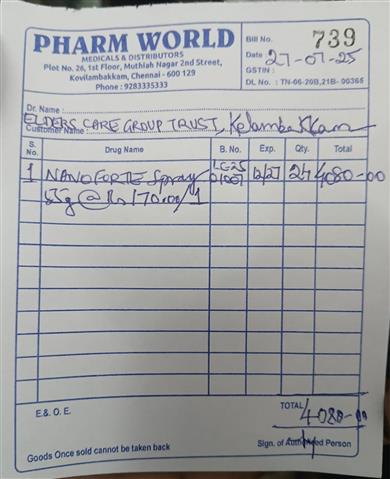 PHARM WORLD
MEDICALS & DISTRIBUTORS
Plot No. 26, 1st Floor, Muthiah Nagar 2nd Street,
Kovilambakkam, Chennai - 600 129
Phone : 9283335333
Bill No. 739
Date 27-07-25
GSTIN :
DL No. : TN-66-20B,21B- 00365
Dr. Name :
ELDERS CARE GROUP TRUST, Kelambakkam
Customer Name :
S. No. Drug Name B. No. Exp. Qty. Total
1 NANOFORTE Spray 12/27 24 4080-00
55g @ Rs 170.00/1
E.& O. E.
TOTAL 4080-00
Goods Once sold cannot be taken back
Sign. of Authorised Person